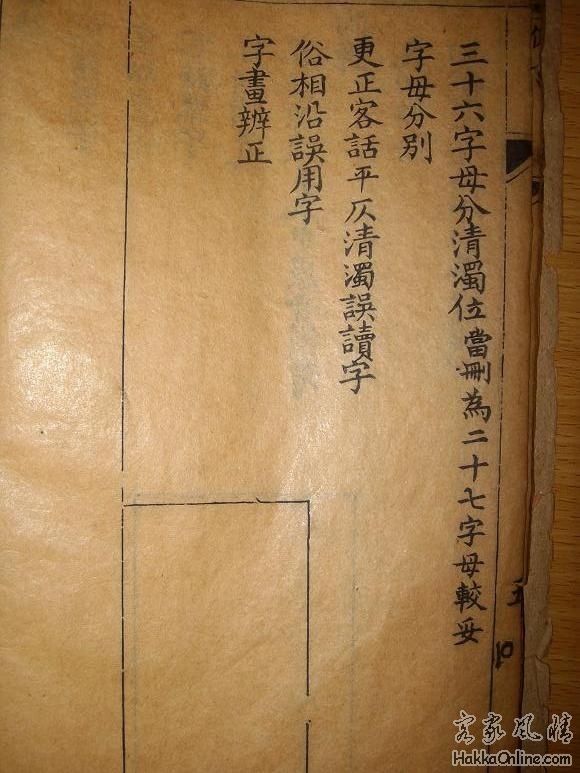 三十六字母分清濁位當刪為二十七字母較妥
字母分別
更正客話平仄清濁誤讀字
俗相沿誤用字
字畫辨正
客家風情
HakkaOnline.com